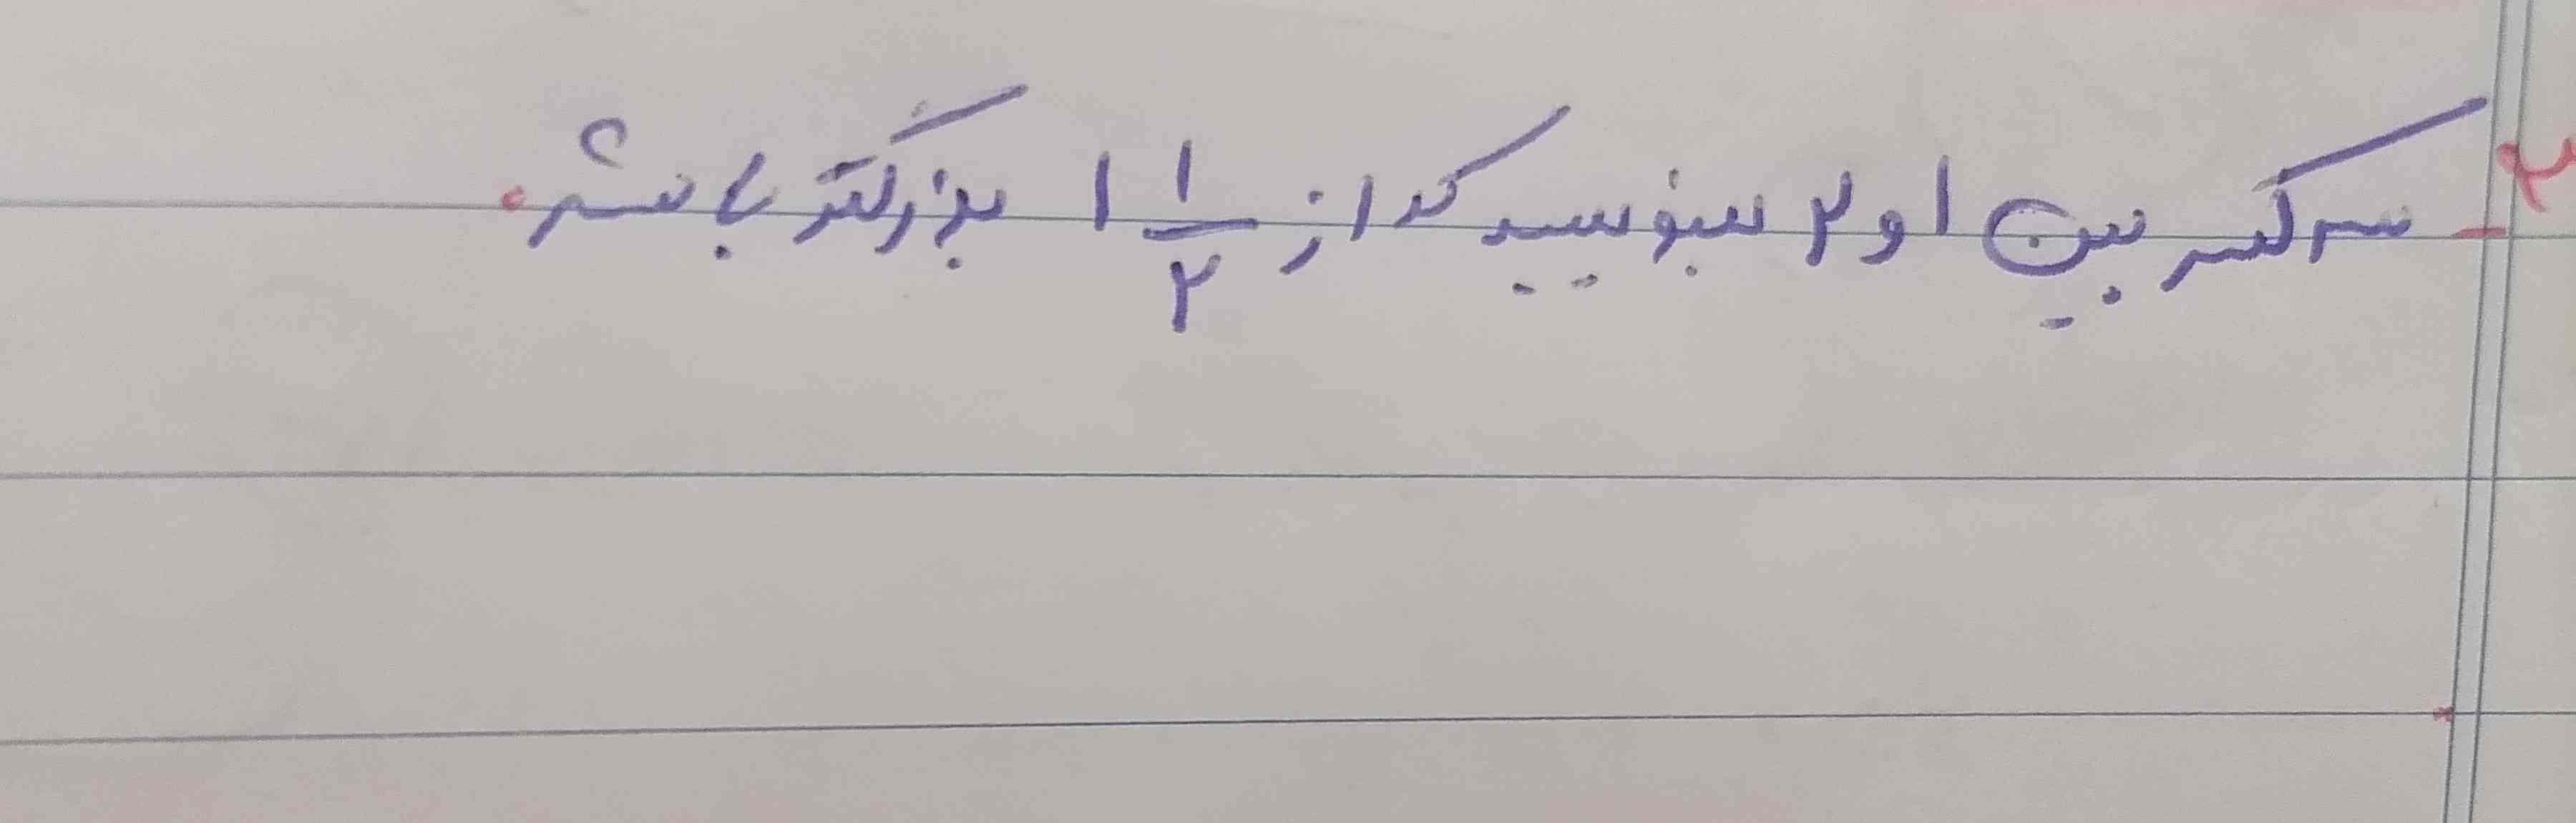 ۲- سه کسر بین ۱ و ۲ بنویسید که از ۱ ۱/۲ بزرگتر باشد؟